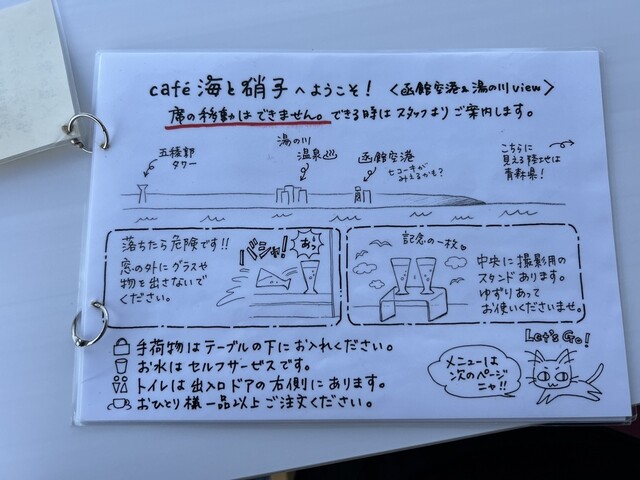 café 海と硝子へようこそ! <函館空港&湯の川view>
席の移動はできません。できる時はスタッフよりご案内します。
五稜郭
タワー
湯の川
温泉♨
函館空港
ヒコーキが
みえるかも?
こちらに
見える陸地は
青森県!
落ちたら危険です!!
窓の外にグラスや
物を出さないで
ください。
バシャ!
あっ
記念の一枚
中央に撮影用の
スタンドあります。
ゆずりあって
お使いくださいませ。
手荷物はテーブルの下にお入れください。
お水はセルフサービスです。
トイレは出入口ドアの右側にあります。
おひとり様一品以上ご注文ください。
メニューは
次のページ
ニャ!!
Let's Go!